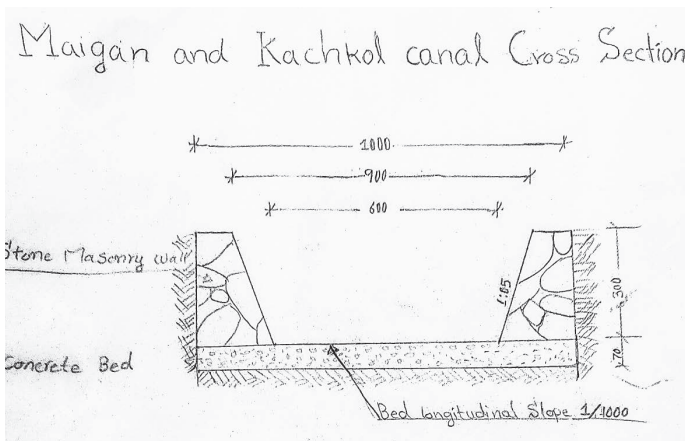 Maigan and Kachkol canal Cross Section
1000
900
600
Stone Masonry wall
1:05
300
Concrete Bed
70
Bed longitudinal Slope 1/1000